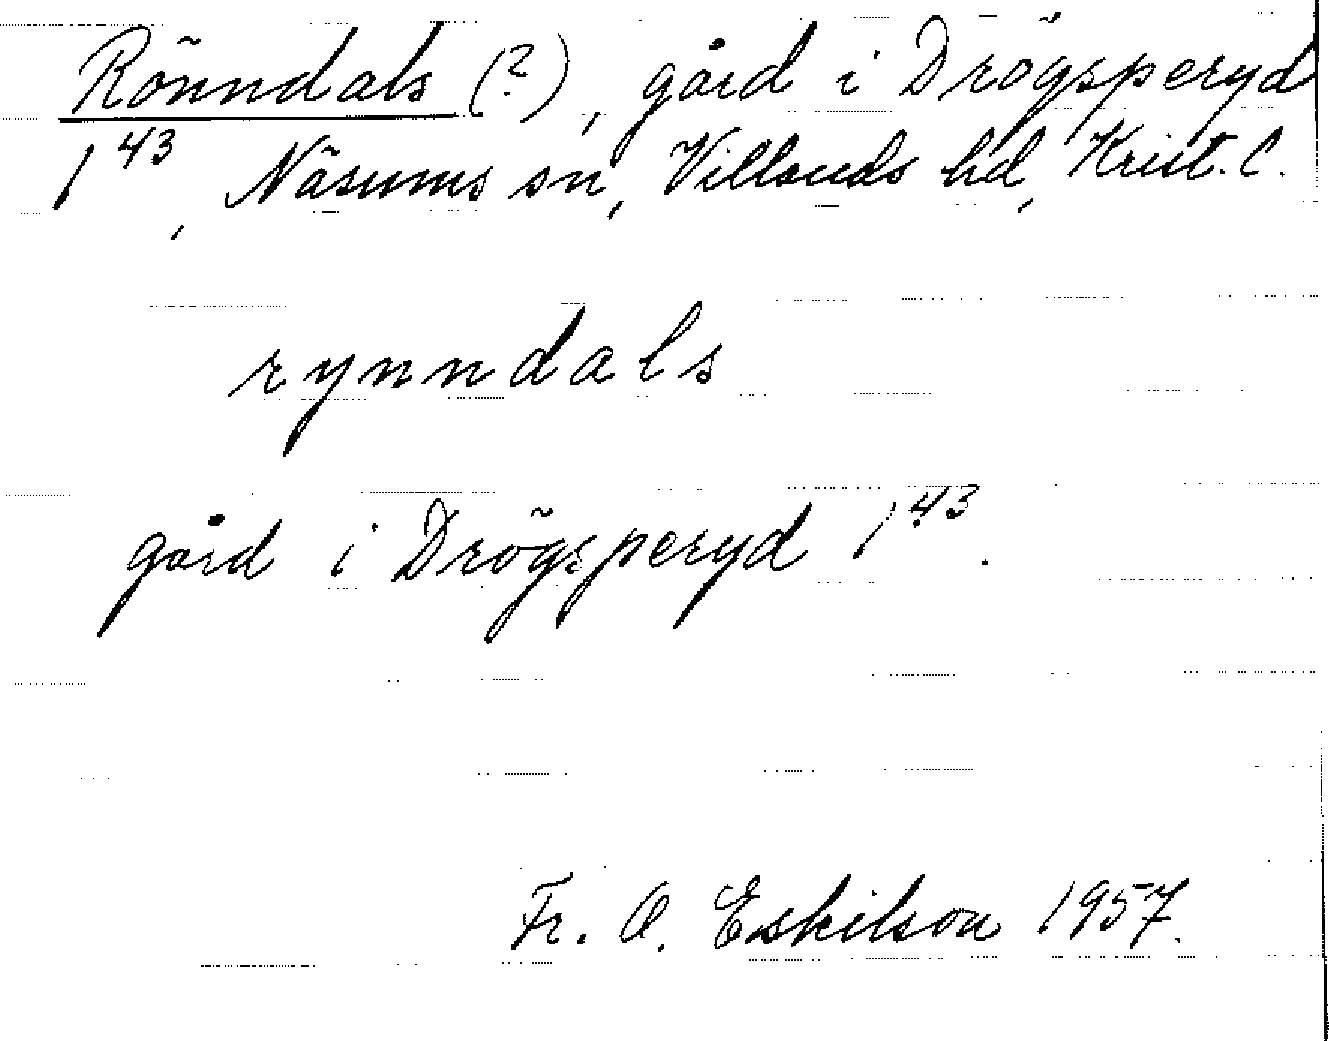 Rönndals (?), gård i Drögsperyd
1⁴³, Näsums sn, Villands hd, Krist. l.
rynndals
gård i Drögsperyd 1⁴³.
Fr. O. Eskilson 1957.